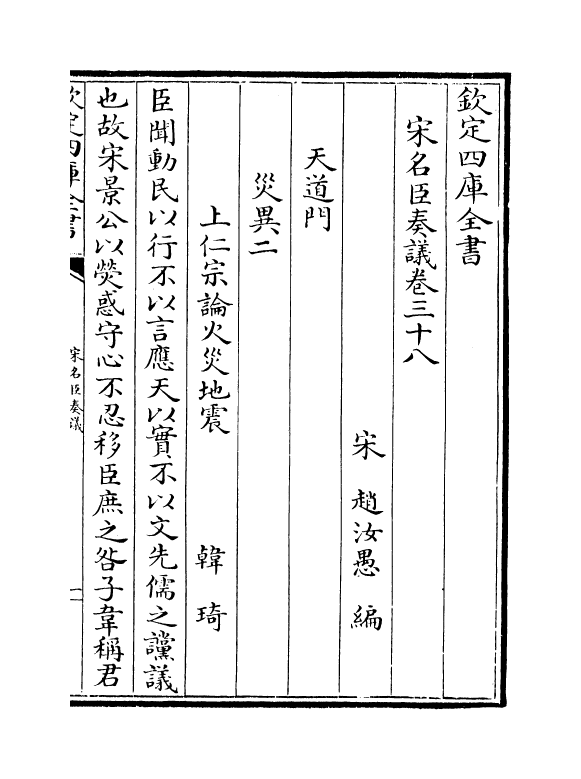 欽定四庫全書
宋名臣奏議卷三十八
宋 趙汝愚 編
天道門
災異二
上仁宗論火災地震 韓琦
臣聞動民以行不以言應天以實不以文先儒之讜議
也故宋景公以熒惑守心不忍移臣庶之咎子韋稱君
欽定四庫全書
宋名臣奏議
一